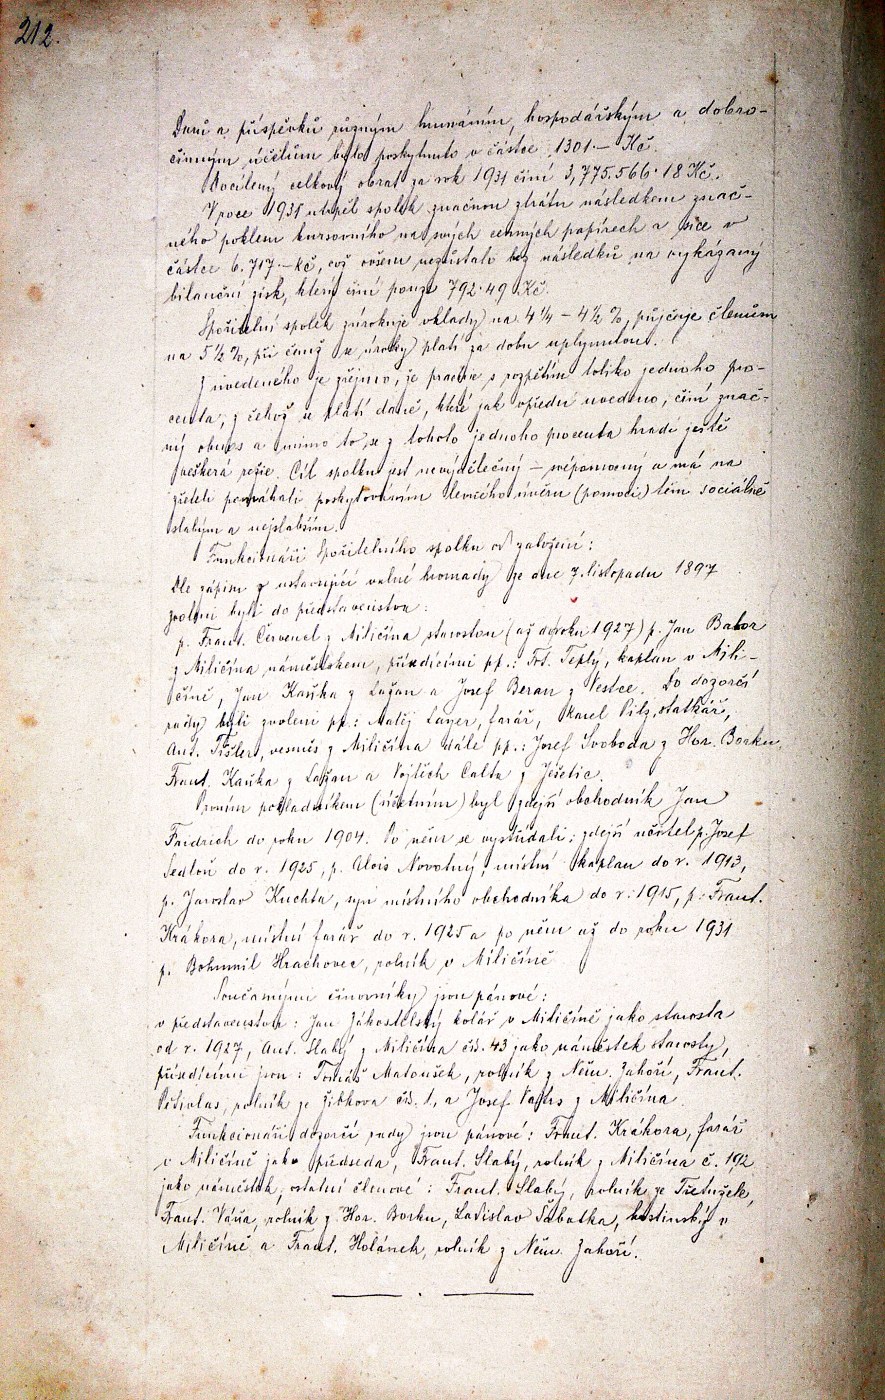 212.
Darů a příspěvků různým humánním, hospodářským a dobro-
činným účelům bylo poskytnuto v částce 1301·– Kč.
Docílený celkový obrat za rok 1931 činí 3,775.566·18 Kč.
V roce 1931 utrpěl spolek značnou ztrátu následkem znač-
ného poklesu kursovního na svých cenných papírech a sice v
částce 6.717·– Kč, což ovšem nezůstalo bez následků na vykázaný
bilanční zisk, který činí pouze 792·49 Kč.
Spořitelní spolek zúrokuje vklady na 4¼ – 4½ %, půjčuje členům
na 5½%, při čemž se úroky platí za dobu uplynulou.
Z uvedeného je zřejmo, že pracuje s rozpětím toliko jednoho pro-
centa, z čehož se platí daně, které jak vpředu uvedeno, činí znač-
ný obnos a mimo to se z tohoto jednoho procenta hradí ještě
veškerá režie. Cíl spolku jest nevýdělečný – svépomocný a má na
zřeteli pomáhati poskytováním levného úvěru (pomoci) těm sociálně
slabým a nejslabším.
Funkcionáři Spořitelního spolku od založení:
Dle zápisu z ustavující valné hromady ze dne 7. listopadu 1897
zvoleni byli do představenstva:
p. Frant. Červenel z Miličína starostou (až do roku 1927) p. Jan Babor
z Miličína náměstkem, přísedícími pp.: Frt. Teplý, kaplan v Mili-
číně, Jan Kaňka z Lažan a Josef Beran z Vestce. Do dozorčí
rady byli zvoleni pp.: Matěj Layer, farář, Karel Pilz, statkář,
Ant. Tišler, vesměs z Miličína dále pp.: Josef Svoboda z Hor. Borku,
Frant. Kaňka z Lažan a Vojtěch Calta z Ješetic.
Prvním pokladníkem (účetním) byl zdejší obchodník Jan
Fridrich do roku 1904. Po něm se vystřídali: zdejší učitel p. Josef
Sedloň do r. 1925, p. Alois Novotný, místní kaplan do r. 1913,
p. Jaroslav Kuchta, syn místního obchodníka do r. 1915, p. Frant.
Krákora, místní farář do r. 1925 a po něm až do roku 1931
p. Bohumil Hrachovec, rolník v Miličíně
Současnými činovníky jsou pánové:
v představenstvu: Jan Zákostelský kolář v Miličíně jako starosta
od r. 1927, Ant. Slabý z Miličína čís. 43 jako náměstek starosty,
přísedícími jsou: Tomáš Matoušek, rolník z Něm. Záhoří, Frant.
rolník ze Žibkova čís. 1, a Josef z Miličína.
Funkcionáři dozorčí rady jsou pánové: Frant. Krákora, farář
v Miličíně jako předseda, Frant. Slabý, rolník z Miličína č. 192
jako náměstek, ostatní členové: Frant. Slabý, rolník ze Třetužek,
Frant. Váňa, rolník z Hor. Borku, Ladislav Sobatka, hostinský v
Miličíně a Frant. Holánek, rolník z Něm. Záhoří.